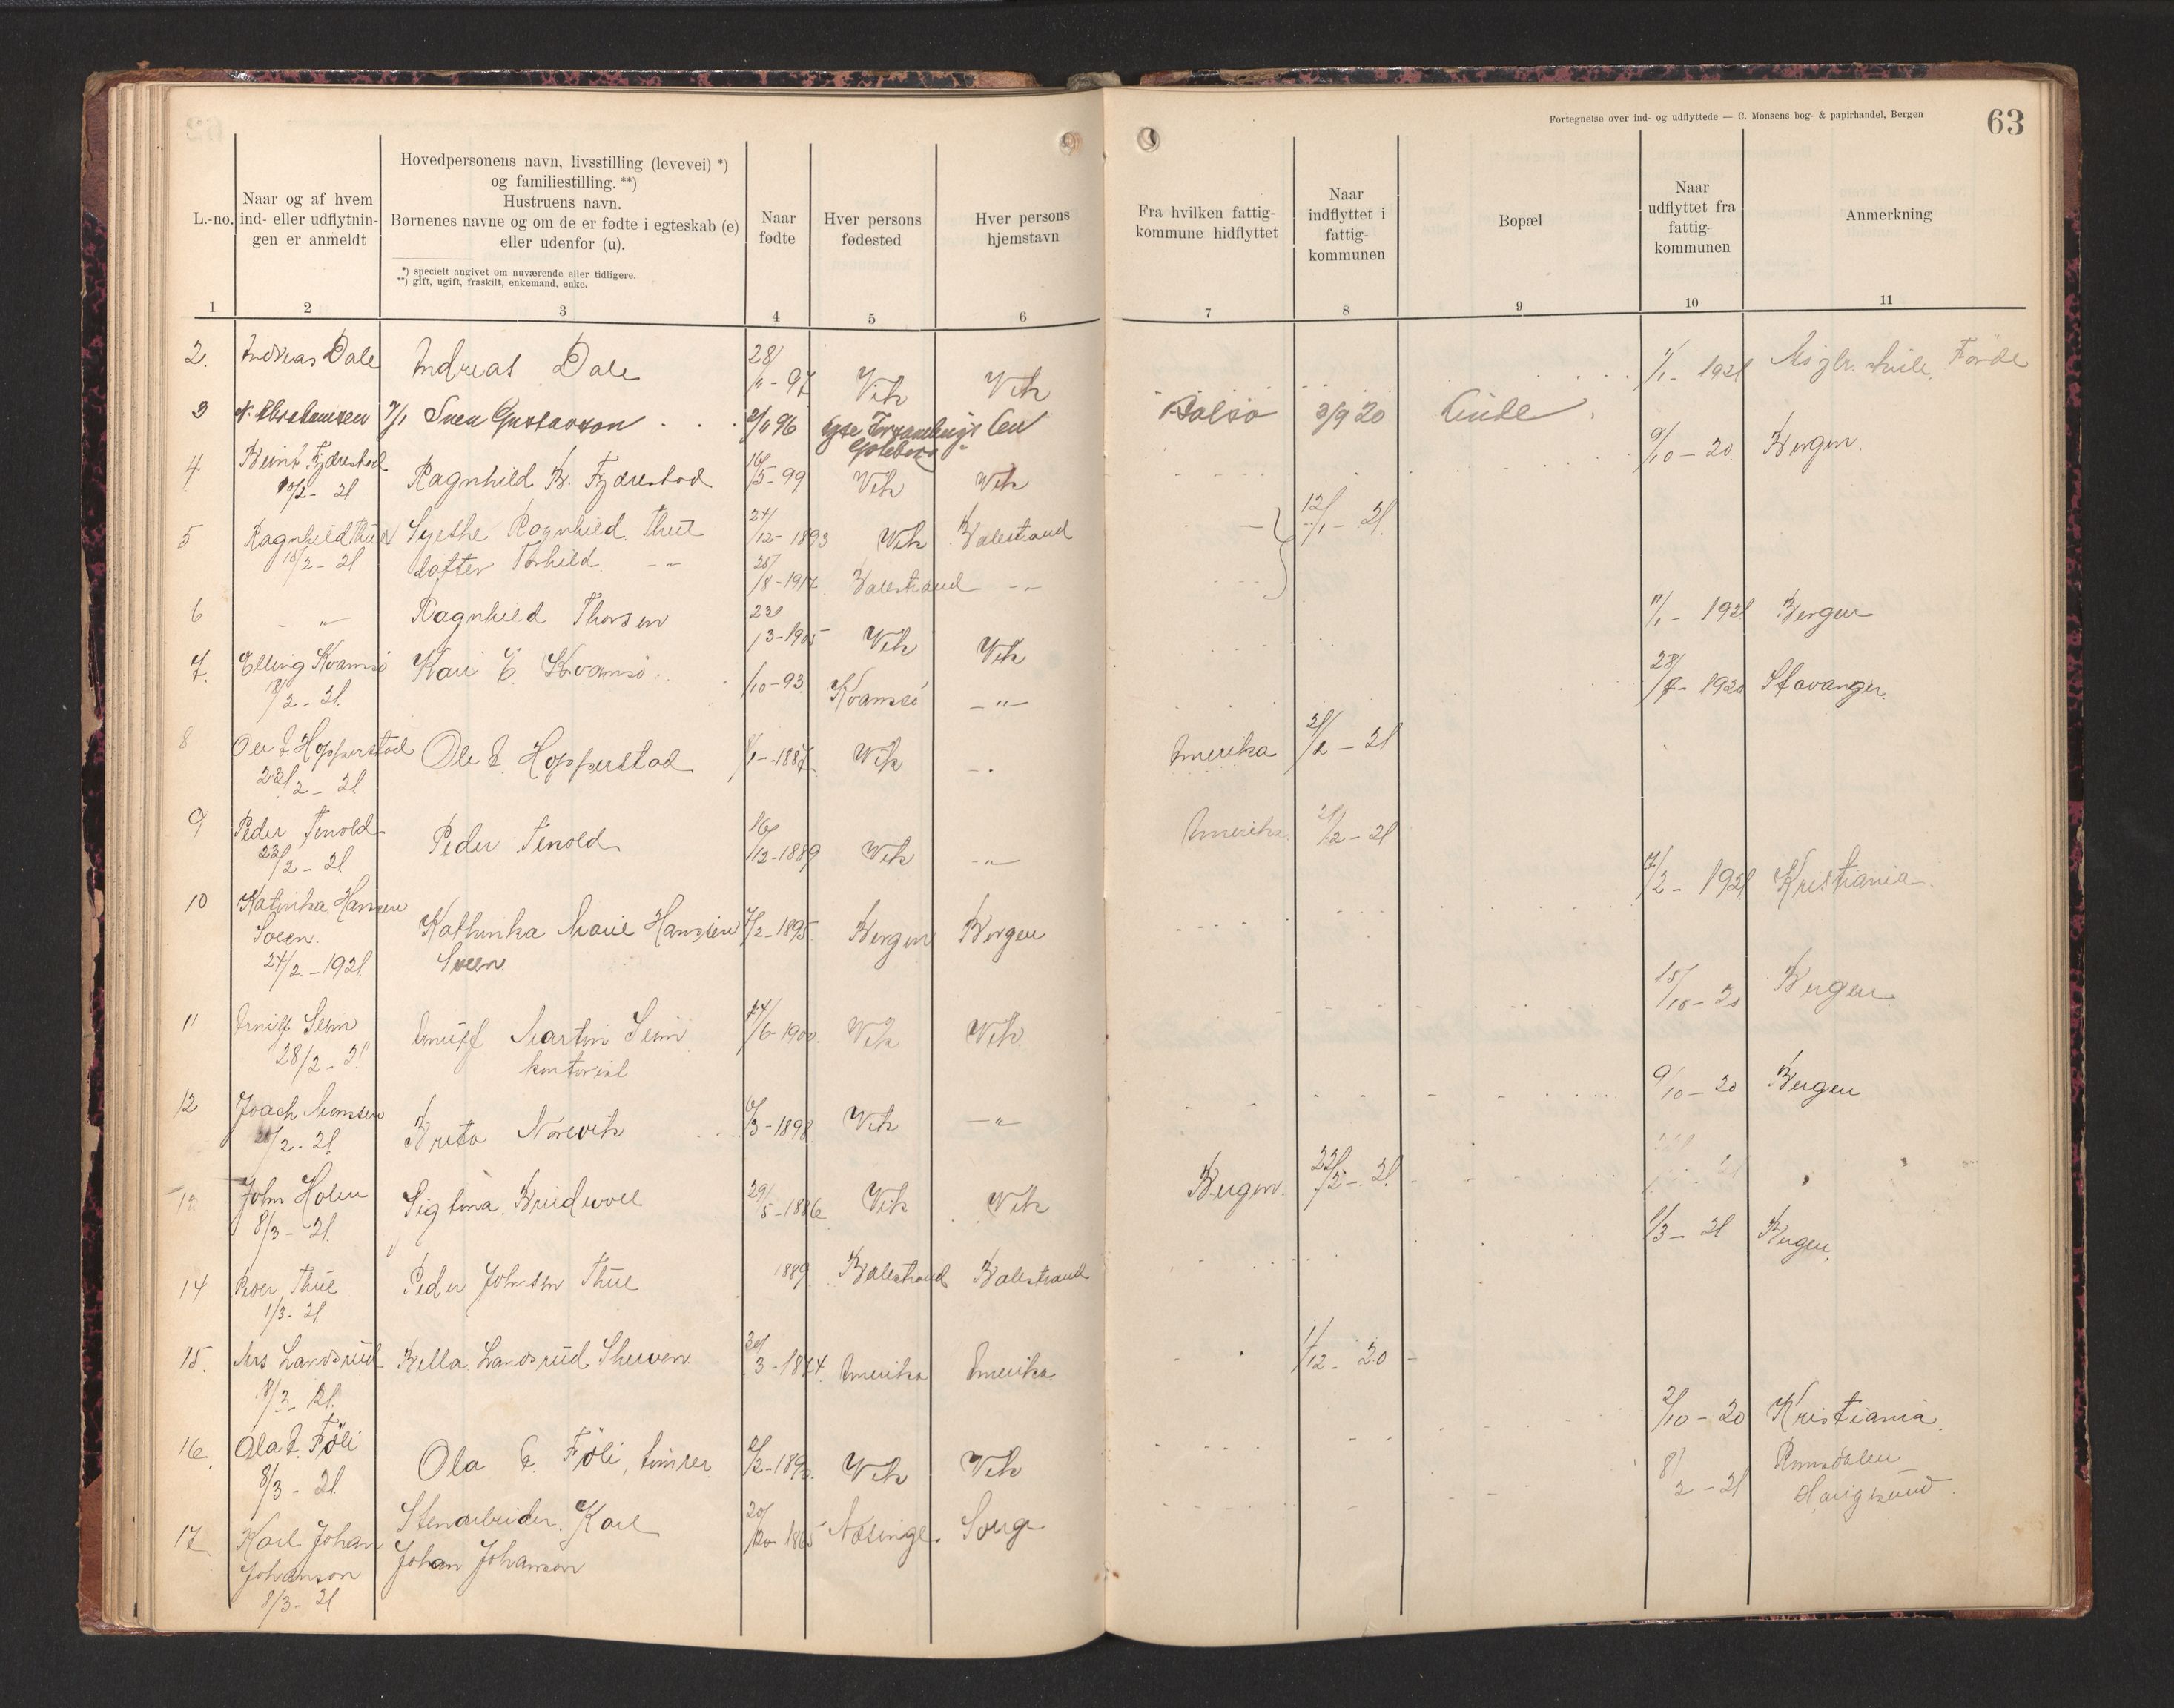 Fortegnelse over ind- og udflyttede — C. Monsens bog- & papirhandel, Bergen
63
L.-no.
Naar og af hvem
ind- eller udflytnin-
gen er anmeldt
Hovedpersonens navn, livsstilling (levevei) *)
og familiestilling. **)
Hustruens navn.
Børnenes navne og om de er fødte i egteskab (e)
eller udenfor (u).
*) specielt angivet om nuværende eller tidligere.
**) gift, ugift, fraskilt, enkemand, enke.
Naar
fødte
Hver persons
fødested
Hver persons
hjemstavn
Fra hvilken fattig-
kommune hidflyttet
Naar
indflyttet i
fattig-
kommunen
Bopæl
Naar
udflyttet fra
fattig-
kommunen
Anmerkning
1 2 3 4 5 6 7 8 9 10 11
2. Andreas Dale Andreas Dale 28/11-97 Vik Vik 1/1-1921 Förde
3 N. Abrahamsen 7/1 Sven Gustavson 96 3/9 20
Göteborg
4. Bernt Fjærestad Ragnhild B. Fjærestad 16/5-99 Vik Vik 9/10-20 Bergen.
10/2-21
5 Ragnhild Thue Syerske Ragnhild Thue 24/12-1893 Vik Balestrand 12/1-21.
18/2-21 datter Torhild -"- 28/8-1917 Balestrand -"-
6 -"- Ragnhild Thorsen 23/3-1905 Vik Vik 11/1-1921 Bergen
7. Elling Kvamsö Kari E. Kvamsö /10-93 Kvamsö -"- 28/7-1920 Stavanger.
/2-21.
8 Ole E. Hopperstad Ole E. Hopperstad 1/1-1887 Vik -"- Amerika 21/2-21
23/2-21
9 Peder Tenold Peder Tenold 16/12-1889 Vik -"- Amerika. 21/2-21
23/2-21.
10 Katinka Hansen Kathinka Marie Hansen 7/2-1895 Bergen Bergen 7/2-1921 Kristiania.
Sveen. Sveen.
24/2-1921.
11 Seim Martin Seim 24/6-1900. Vik Vik. 15/10-20 Bergen.
28/2-21 kontorist
12 Joach Monsen Brita Norevik 6/3-1898 Vik -"- 9/10-20 Bergen
/2-21
John Holen 29/5-1886 Vik Vik Bergen. 22/2-21.
8/3-21.
14 Roer Thue Peder Johnsen Thue 1889 Balestrand Balestrand /3-21 Bergen.
1/3-21
15. Mrs Landsrud Bella Landsrud 30/3-18 4. Amerika Amerika 1/12-20
8/3-21.
16. Ola E. Föli Ola E. Föli, tömrer 2/2-189 Vik Vik 2/10-20 Kristiania.
8/3-21.
17 Karl Johan Stenarbeider. Karl 20/ 1865 Næsinge. 8/2-21 Romsdalen
Johanson Johan Johanson
8/3-21